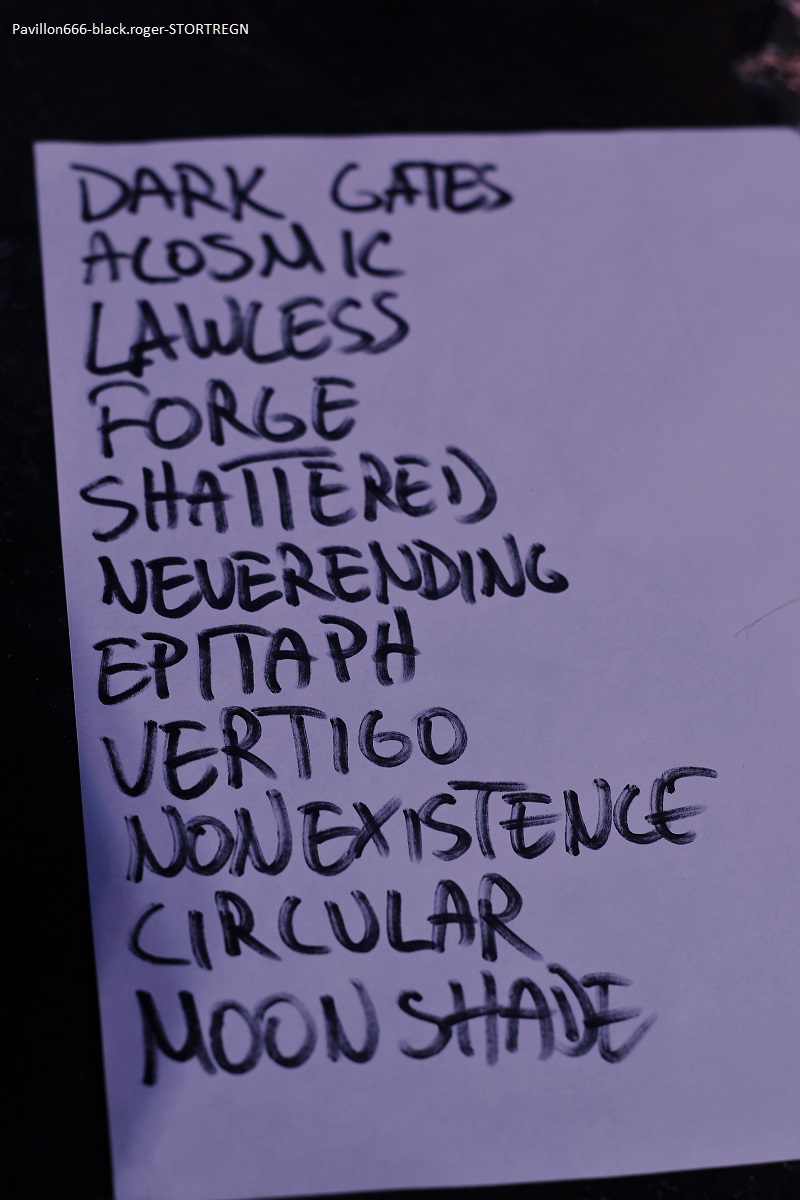 Pavillon666-black.roger-STORTREGN
DARK GATES
ACOSMIC
LAWLESS
FORGE
SHATTERED
NEVERENDING
EPITAPH
VERTIGO
NONEXISTENCE
CIRCULAR
MOONSHADE